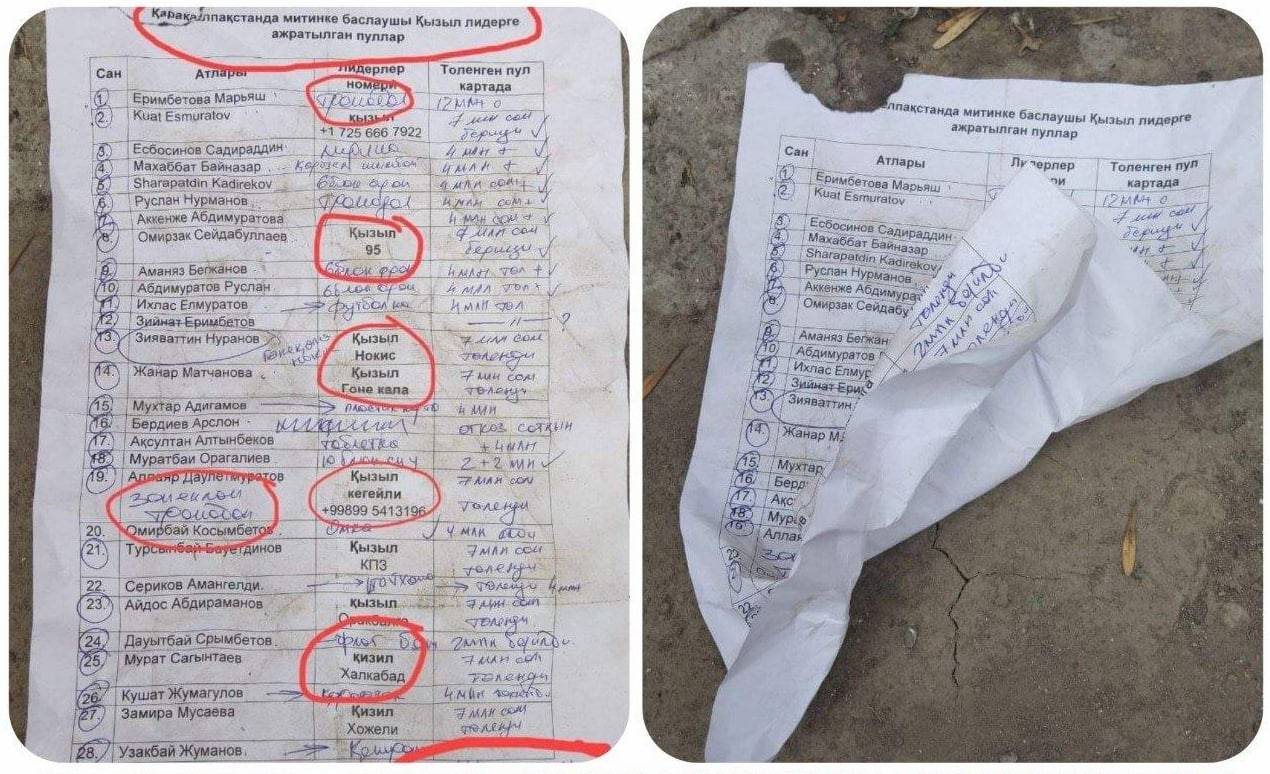 Қарақалпақстанда митинке баслаушы Қызыл лидерге
ажратылган пуллар
Сан Атлары Лидерлер номери Толенген пул картада
1. Еримбетова Марьяш 12 млн о
2. Kuat Esmuratov қызыл 7 млн сом
+1 725 666 7922 бериди ✓
3. Есбосинов Садираддин 4 млн + ✓
4. Махаббат Байназар 4 млн + ✓
5. Sharapatdin Kadirekov 4 млн сом+ ✓
6. Руслан Нурманов 4 млн сом+ ✓
7. Аккенже Абдимуратова 4 млн сом+ ✓
8. Омирзак Сейдабуллаев Қызыл 7 млн сом
95 бериди ✓
9. Аманяз Бегжанов 4 млн тол + ✓
10. Абдимуратов Руслан 4 млн тол+ ✓
11. Ихлас Елмуратов → футболка 4 млн тол
12. Зийнат Еримбетов —〃— ?
13. Зияваттин Нуранов Қызыл 7 млн сом
Нокис толенди
14. Жанар Матчанова Қызыл 7 млн сом
Гоне кала толенди
15. Мухтар Адигамов → 4 млн
16. Бердиев Арслон отказ
17. Ақсултан Алтынбеков таблетка + 4 млн
18. Муратбай Орагалиев 2 + 2 млн ✓
19. Аллаяр Даулетмуратов Қызыл 7 млн сом
кегейли
+99899 5413196 толенди
20. Омирбай Косымбетов ✓ 4 млн
21. Турсынбай Бауетдинов Қызыл 7 млн сом
КПЗ толенди
22. Сериков Амангелди. → → толенди 4 млн
23. Айдос Абдираманов қызыл 7 млн сом
толенди
24. Дауытбай Срымбетов. флаг 2 млн
25. Мурат Сагынтаев қизил 7 млн сом
Халкабад толенди
26. Кушат Жумагулов → 4 млн
27. Замира Мусаева Қизил 7 млн сом
Хожели толенди
28. Узакбай Жуманов. →
лпақстанда митинке баслаушы Қызыл лидерге
ажратылган пуллар
Сан Атлары Лидерлер Толенген пул
картада
1. Еримбетова Марьяш 12 млн о
2. Kuat Esmuratov 7 млн сом
бериди ✓
3. Есбосинов Садираддин
4. Махаббат Байназар
5. Sharapatdin Kadirekov
6. Руслан Нурманов
7. Аккенже Абдимурат
8. Омирзак Сейдабу
9. Аманяз Бегжан
10. Абдимуратов
11. Ихлас Елмур
12. Зийнат Ери
13. Зияваттин
14. Жанар М
15. Мухтар
16. Берд
17. Ақс
18. Мур
19. Алла
толенди
2 млн
7 млн сом
толенди